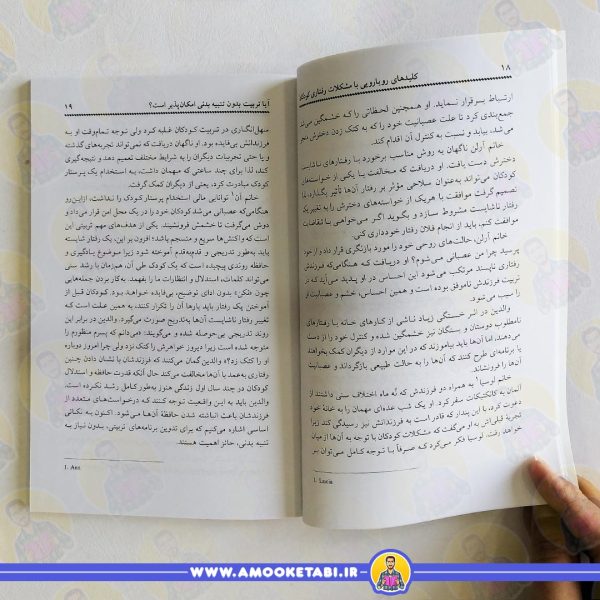 ۱۸
کلیدهای رویارویی با مشکلات رفتاری کودکان
ارتباط برقرار نماید. او همچنین لحظاتی را که خشمگین می‌شد
جمع‌بندی کرد تا علت عصبانیت خود را که به کتک زدن دخترش منجر
می‌شد، بیابد و نسبت به کنترل آن اقدام کند.
خانم آرلن ناگهان به روش مناسب برخورد با رفتارهای ناشایست
دخترش دست یافت. او دریافت که مخالفت با یکی از خواسته‌های
کودکان می‌تواند به‌عنوان سلاحی مؤثر بر رفتار آن‌ها تأثیر بگذارد، لذا
تصمیم گرفت موافقت با هریک از خواسته‌های دخترش را به تغییر یک
رفتار ناشایست مشروط سازد و بگوید اگر می‌خواهی با تقاضایت
موافقت کنم، باید از انجام فلان رفتار خودداری کنی.
خانم آرلن، حالت‌های روحی خود را مورد بازنگری قرار داد و از خود
پرسید چرا من عصبانی می‌شوم؟ او دریافت که هنگامی‌که فرزندش
رفتاری ناپسند مرتکب می‌شود این احساس در او پدید می‌آید که در
تربیت فرزندش ناموفق بوده است و همین احساس، خشم و عصبانیت او
را سبب می‌شود.
والدین در اثر خستگی زیاد ناشی از کارهای خانه یا رفتارهای
نامطلوب دوستان و بستگان نیز خشمگین شده و کنترل خود را از دست
می‌دهند، اما آن‌ها باید بیاموزند که در این موارد از دیگران کمک بخواهند
یا برنامه‌ای طرح کنند که آن‌ها را به حالت طبیعی بازگرداند و عصبانیت
آن‌ها را فرونشاند.
خانم لوسیا¹ به همراه دو فرزندش که نُه ماه اختلاف سنی داشتند از
آلمان به کانکتیکات سفر کرد. او یک شب عده‌ای مهمان را به خانهٔ خود
دعوت کرد، با این پندار که قادر است به فرزندانش نیز رسیدگی کند زیرا
تجربهٔ قبلی‌اش به او می‌گفت که مشکلات کودکان با توجه به آن‌ها از میان
خواهد رفت. لوسیا فکر می‌کرد که صرفاً با توجه کامل می‌توان بر
1. Lucia
آیا تربیت بدون تنبیه بدنی امکان‌پذیر است؟
۱۹
سهل‌انگاری در تربیت کودکان غلبه کرد ولی توجه تمام‌وقت او به
فرزندانش بی‌فایده بود. او ناگهان دریافت که نمی‌تواند تجربه‌های گذشته
و یا حتی تجربیات دیگران را به شرایط مختلف تعمیم دهد و نتیجه‌گیری
کند، لذا برای چند ساعتی که مهمان داشت، به استخدام یک پرستار
کودک مبادرت کرد، یعنی از دیگران کمک گرفت.
خانم آن¹ توانایی مالی استخدام پرستار کودک را نداشت، ازاین‌رو
هنگامی‌که عصبانی می‌شد کودکان خود را در یک محل امن قرار می‌داد و
دوش می‌گرفت تا خشمش فروبنشیند. یکی از هدف‌های مهم تربیتی این
است که واکنش‌ها سریع و منسجم باشد؛ افزون بر این، یک رفتار شایسته
باید به‌طور تدریجی و قدم‌به‌قدم آموخته شود زیرا موضوع یادگیری و
حافظه روندی پیچیده است که یک کودک طی آن، هم‌زمان با رشد سنی
می‌تواند کلمات، استدلال و انتظارات ما را بفهمد. به‌کار بردن جمله‌هایی
چون «نکن» بدون ادای توضیح، بی‌فایده خواهد بود. کودکان قبل از
آموختن یک رفتار باید بارها آن را تکرار کنند، به همین علت است که
تغییر رفتار ناشایست آن‌ها به‌تدریج صورت می‌گیرد. والدین در برابر این
روند تدریجی بی‌حوصله شده و می‌گویند: «می‌دانم که پسرم منظورم را
متوجه شده است زیرا دیروز خواهرش را کتک نزد ولی چرا امروز دوباره
او را کتک زد؟» والدین گمان می‌کنند که فرزندشان با نشان دادن چنین
رفتاری به‌عمد با آن‌ها مخالفت می‌کند حال آنکه قدرت حافظه و استدلال
کودکان در چند سال اول زندگی هنوز به‌طور کامل رشد نکرده است.
والدین باید به این واقعیت توجه کنند که درخواست‌های متعدد از
فرزندشان باعث انباشته شدن حافظهٔ آن‌ها می‌شود. اکنون به نکاتی
اساسی اشاره می‌کنیم که برای تدوین برنامه‌های تربیتی، بدون نیاز به
تنبیه بدنی، حائز اهمیت هستند.
1. Ann
WWW.AMOOKETABI.IR